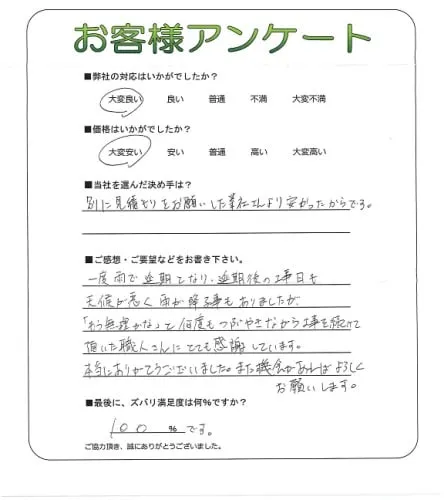 お客様アンケート
■弊社の対応はいかがでしたか？
大変良い 良い 普通 不満 大変不満
■価格はいかがでしたか？
大変安い 安い 普通 高い 大変高い
■当社を選んだ決め手は？
別に見積もりをお願いした業社さんより安かったからです。
■ご感想・ご要望などをお書き下さい。
一度雨で延期となり、延期後の工事日も
天候が悪く雨が降る事もありましたが、
「もう無理かな」と何度もつぶやきながら工事を続けて
頂いた職人さんにとても感謝しています。
本当にありがとうございました。また機会があればよろしく
お願いします。
■最後に、ズバリ満足度は何％ですか？
100 ％です。
ご協力頂き、誠にありがとうございました。